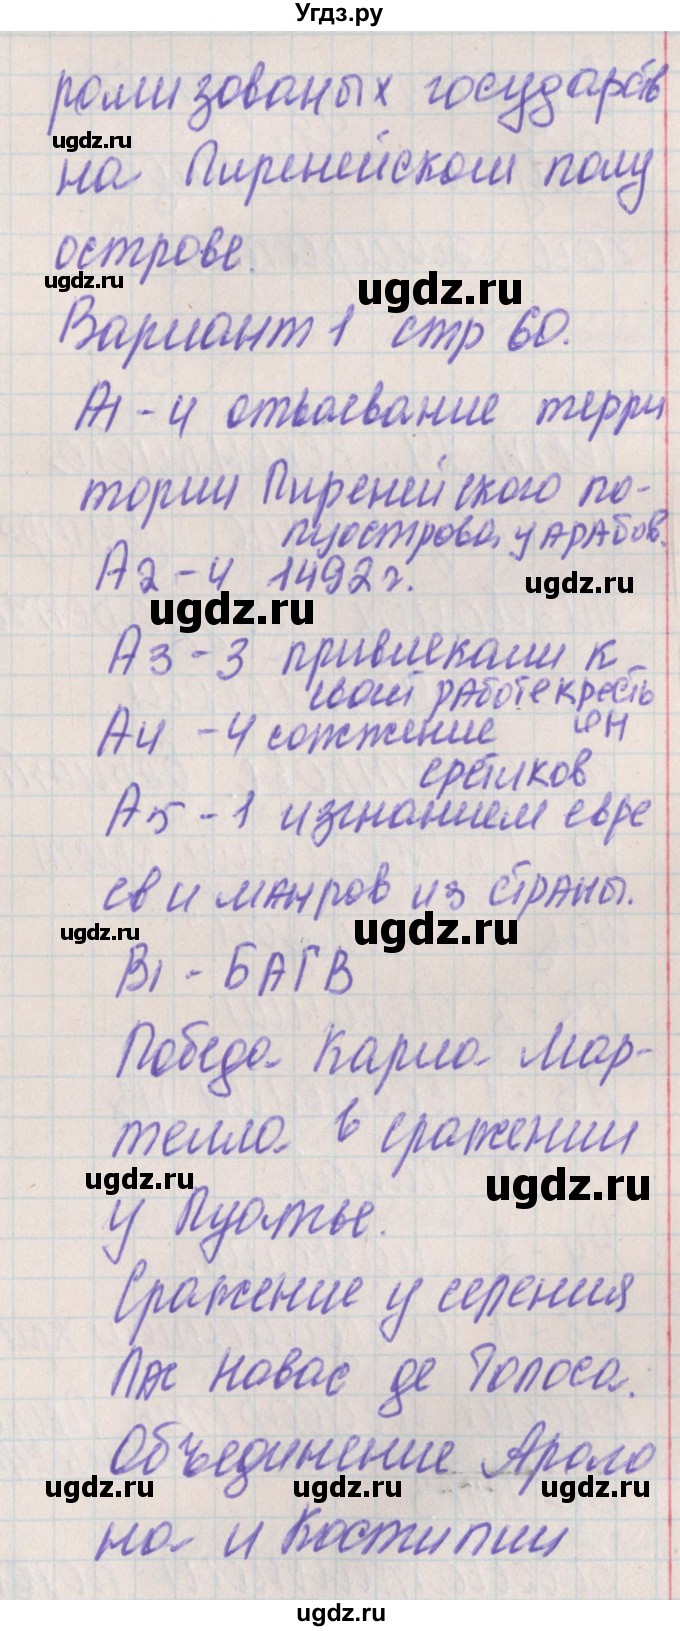 Угдз.ру
ромизованых государств
ugdz.ru
на Пиренейском полу
острове.
ugdz.ru
ugdz.ru
Вариант 1 стр 60.
А1-4 отвоевание терри
тории Пиренейского по-
луострова у арабов.
А2-4 1492 г.
ugdz.ru
ugdz.ru
А3-3 привлекали к
своей работе кресть
А4-4 сожжение ян
еретиков
А5-1 изгнанием евре
ев и мавров из страны.
ugdz.ru
ugdz.ru
В1-БАГВ
Победа Карла Мар-
телла в сражении
ugdz.ru
ugdz.ru
у Пуатье.
Сражение у селения
Лас Навас де Толоса.
Объединение Араго
ugdz.ru ugdz.ru ugdz.ru
на и Кастилии
ugdz.ru